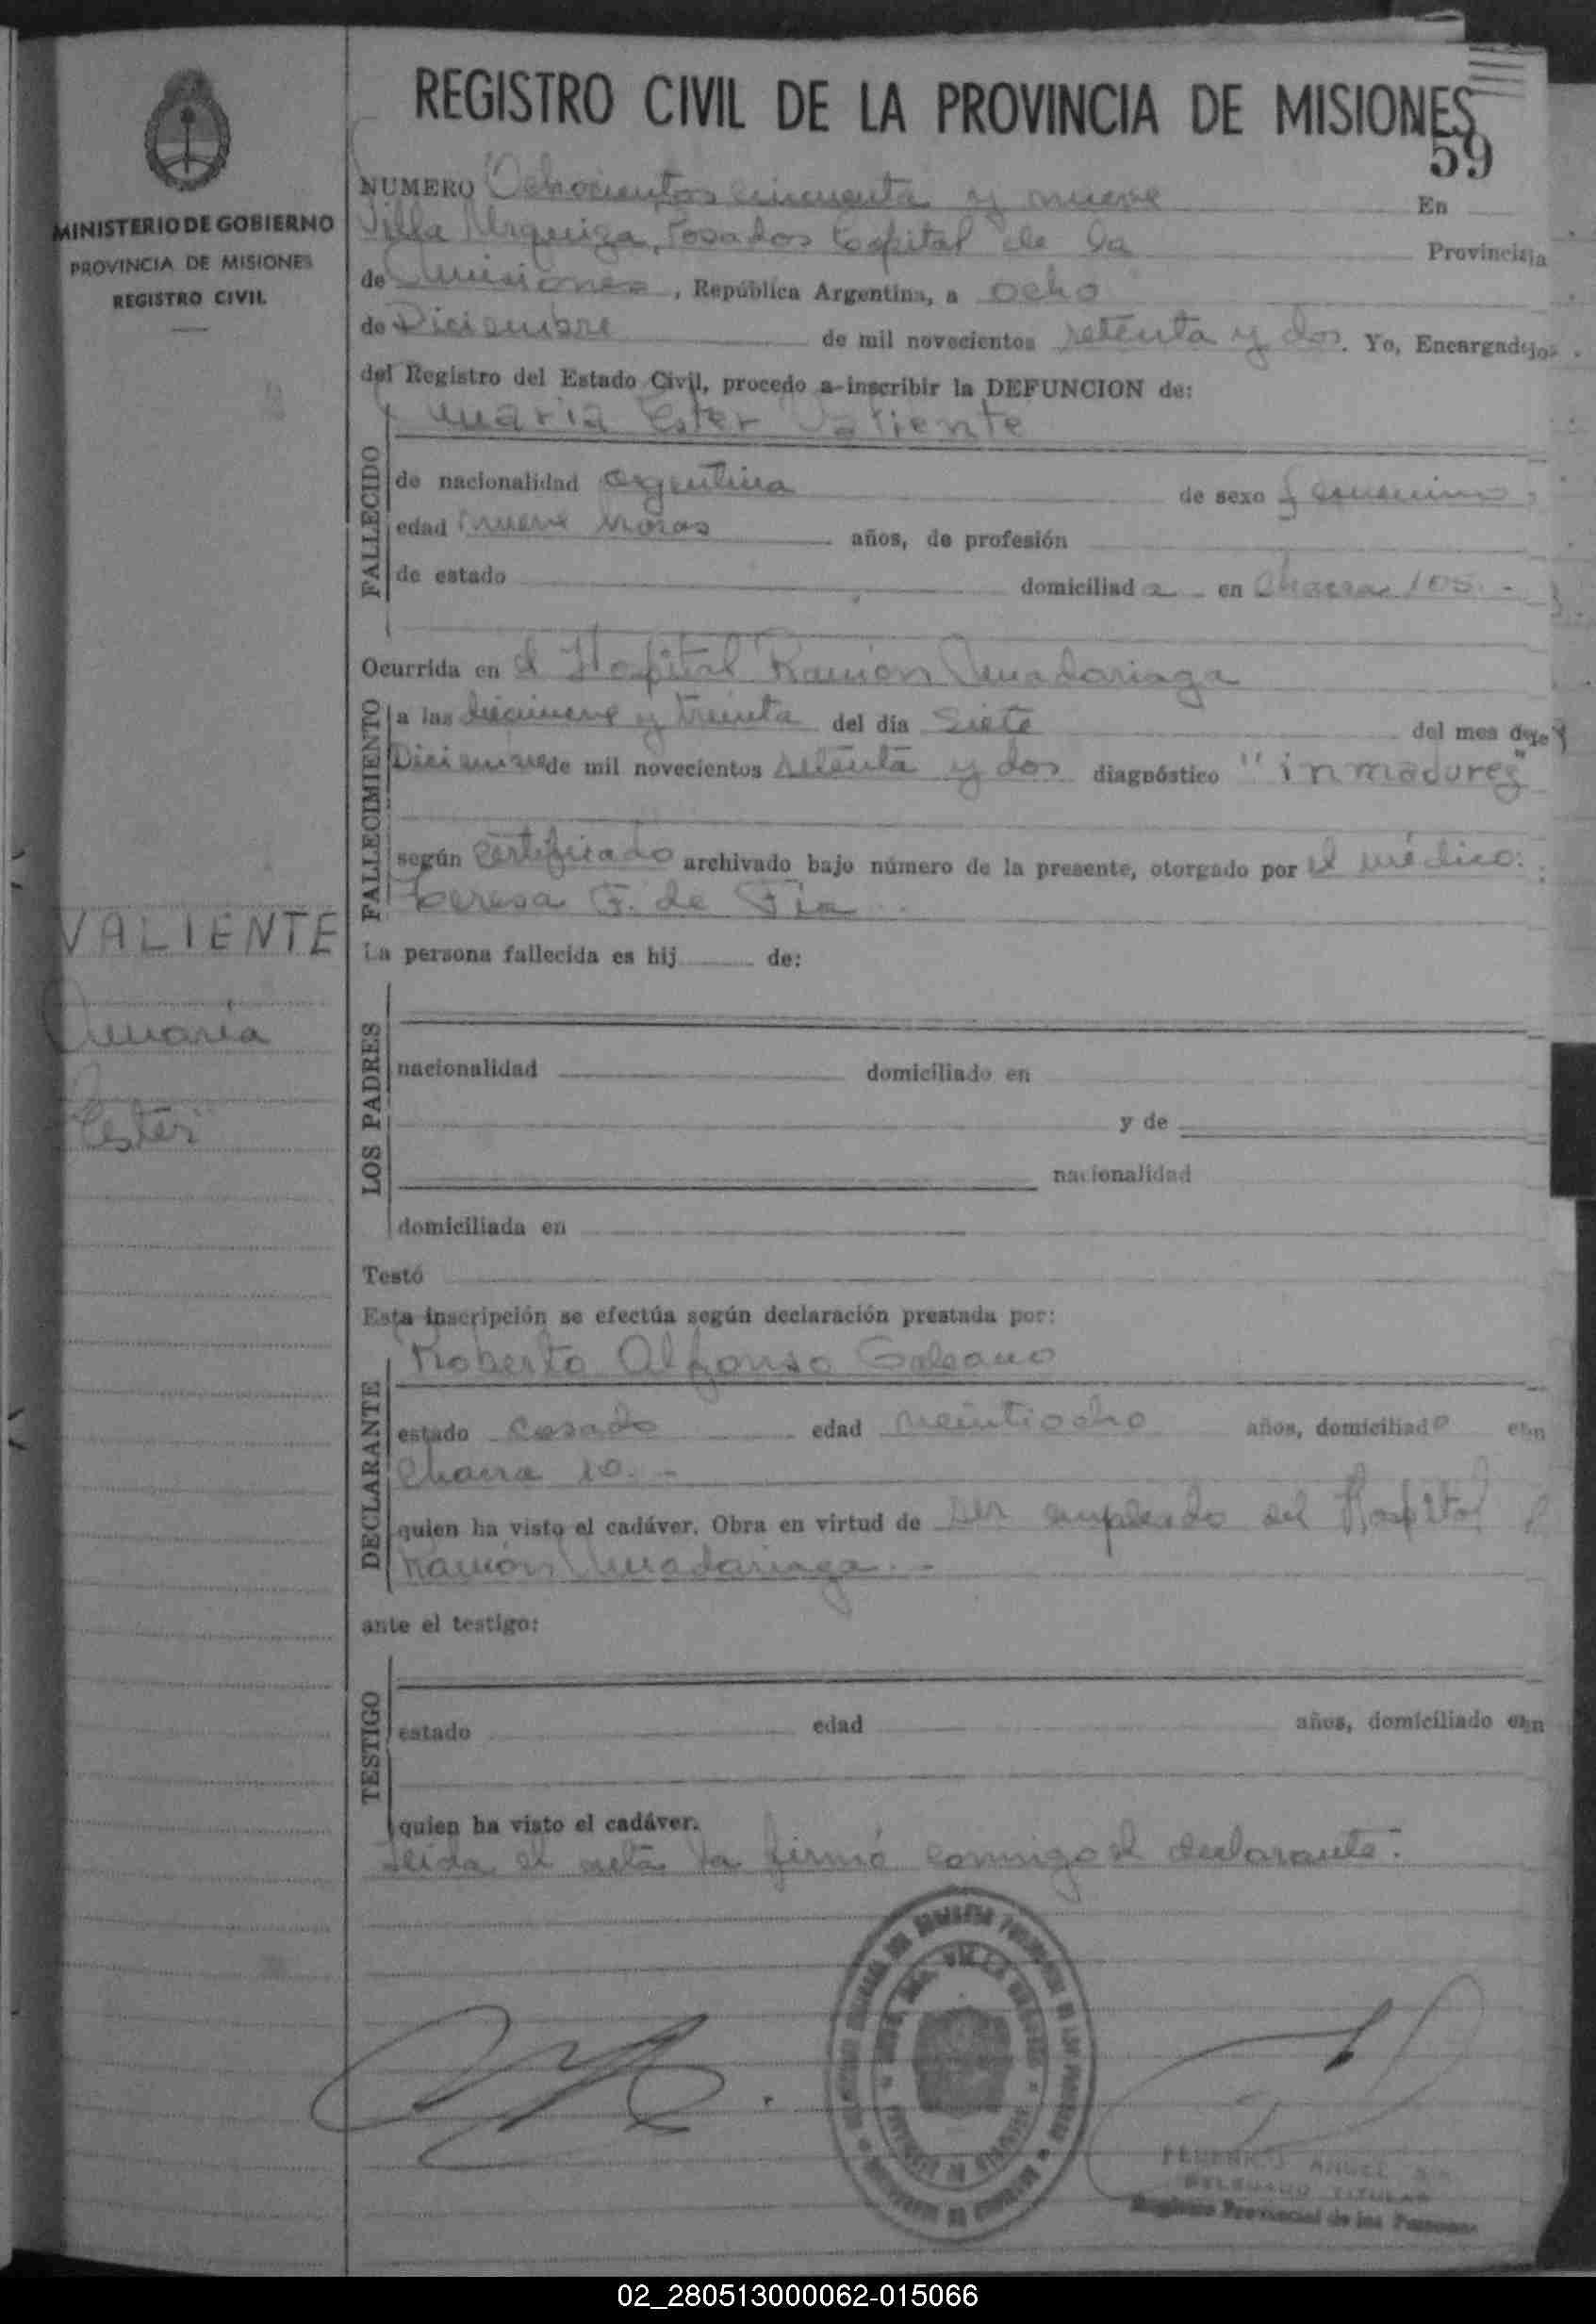 REGISTRO CIVIL DE LA PROVINCIA DE MISIONES
59
MINISTERIO DE GOBIERNO
PROVINCIA DE MISIONES
REGISTRO CIVIL
NUMERO Ochocientos cincuenta y nueve En
Villa Urquiza, Posadas Capital de la Provincia
de Misiones, República Argentina, a ocho
de Diciembre de mil novecientos setenta y dos. Yo, Encargado
del Registro del Estado Civil, procedo a inscribir la DEFUNCION de:
Maria Ester Valiente
FALLECIDO
de nacionalidad argentina de sexo femenino
edad nueve horas años, de profesión
de estado domiciliad a en Chacra 105.-
Ocurrida en el Hospital Ramón Madariaga
FALLECIMIENTO
a las diecinueve y treinta del día siete del mes de
Diciembre de mil novecientos setenta y dos diagnóstico "inmadurez"
según certificado archivado bajo número de la presente, otorgado por el médico:
Teresa F. de
VALIENTE
Maria
Ester
La persona fallecida es hij de:
LOS PADRES
nacionalidad domiciliado en
y de
nacionalidad
domiciliada en
Testó
Esta inscripción se efectúa según declaración prestada por:
Roberto Alfonso Galeano
DECLARANTE
estado casado edad veintiocho años, domiciliado en
Chacra 10.-
quien ha visto el cadáver. Obra en virtud de ser empleado del Hospital
Ramón Madariaga.-
ante el testigo:
TESTIGO
estado edad años, domiciliado en
quien ha visto el cadáver.
Leida el acta la firmó conmigo el declarante.-
VILLA URQUIZA
FEDERICO ANGEL
DELEGADO TITULAR
Registro Provincial de las Personas
02_280513000062-015066